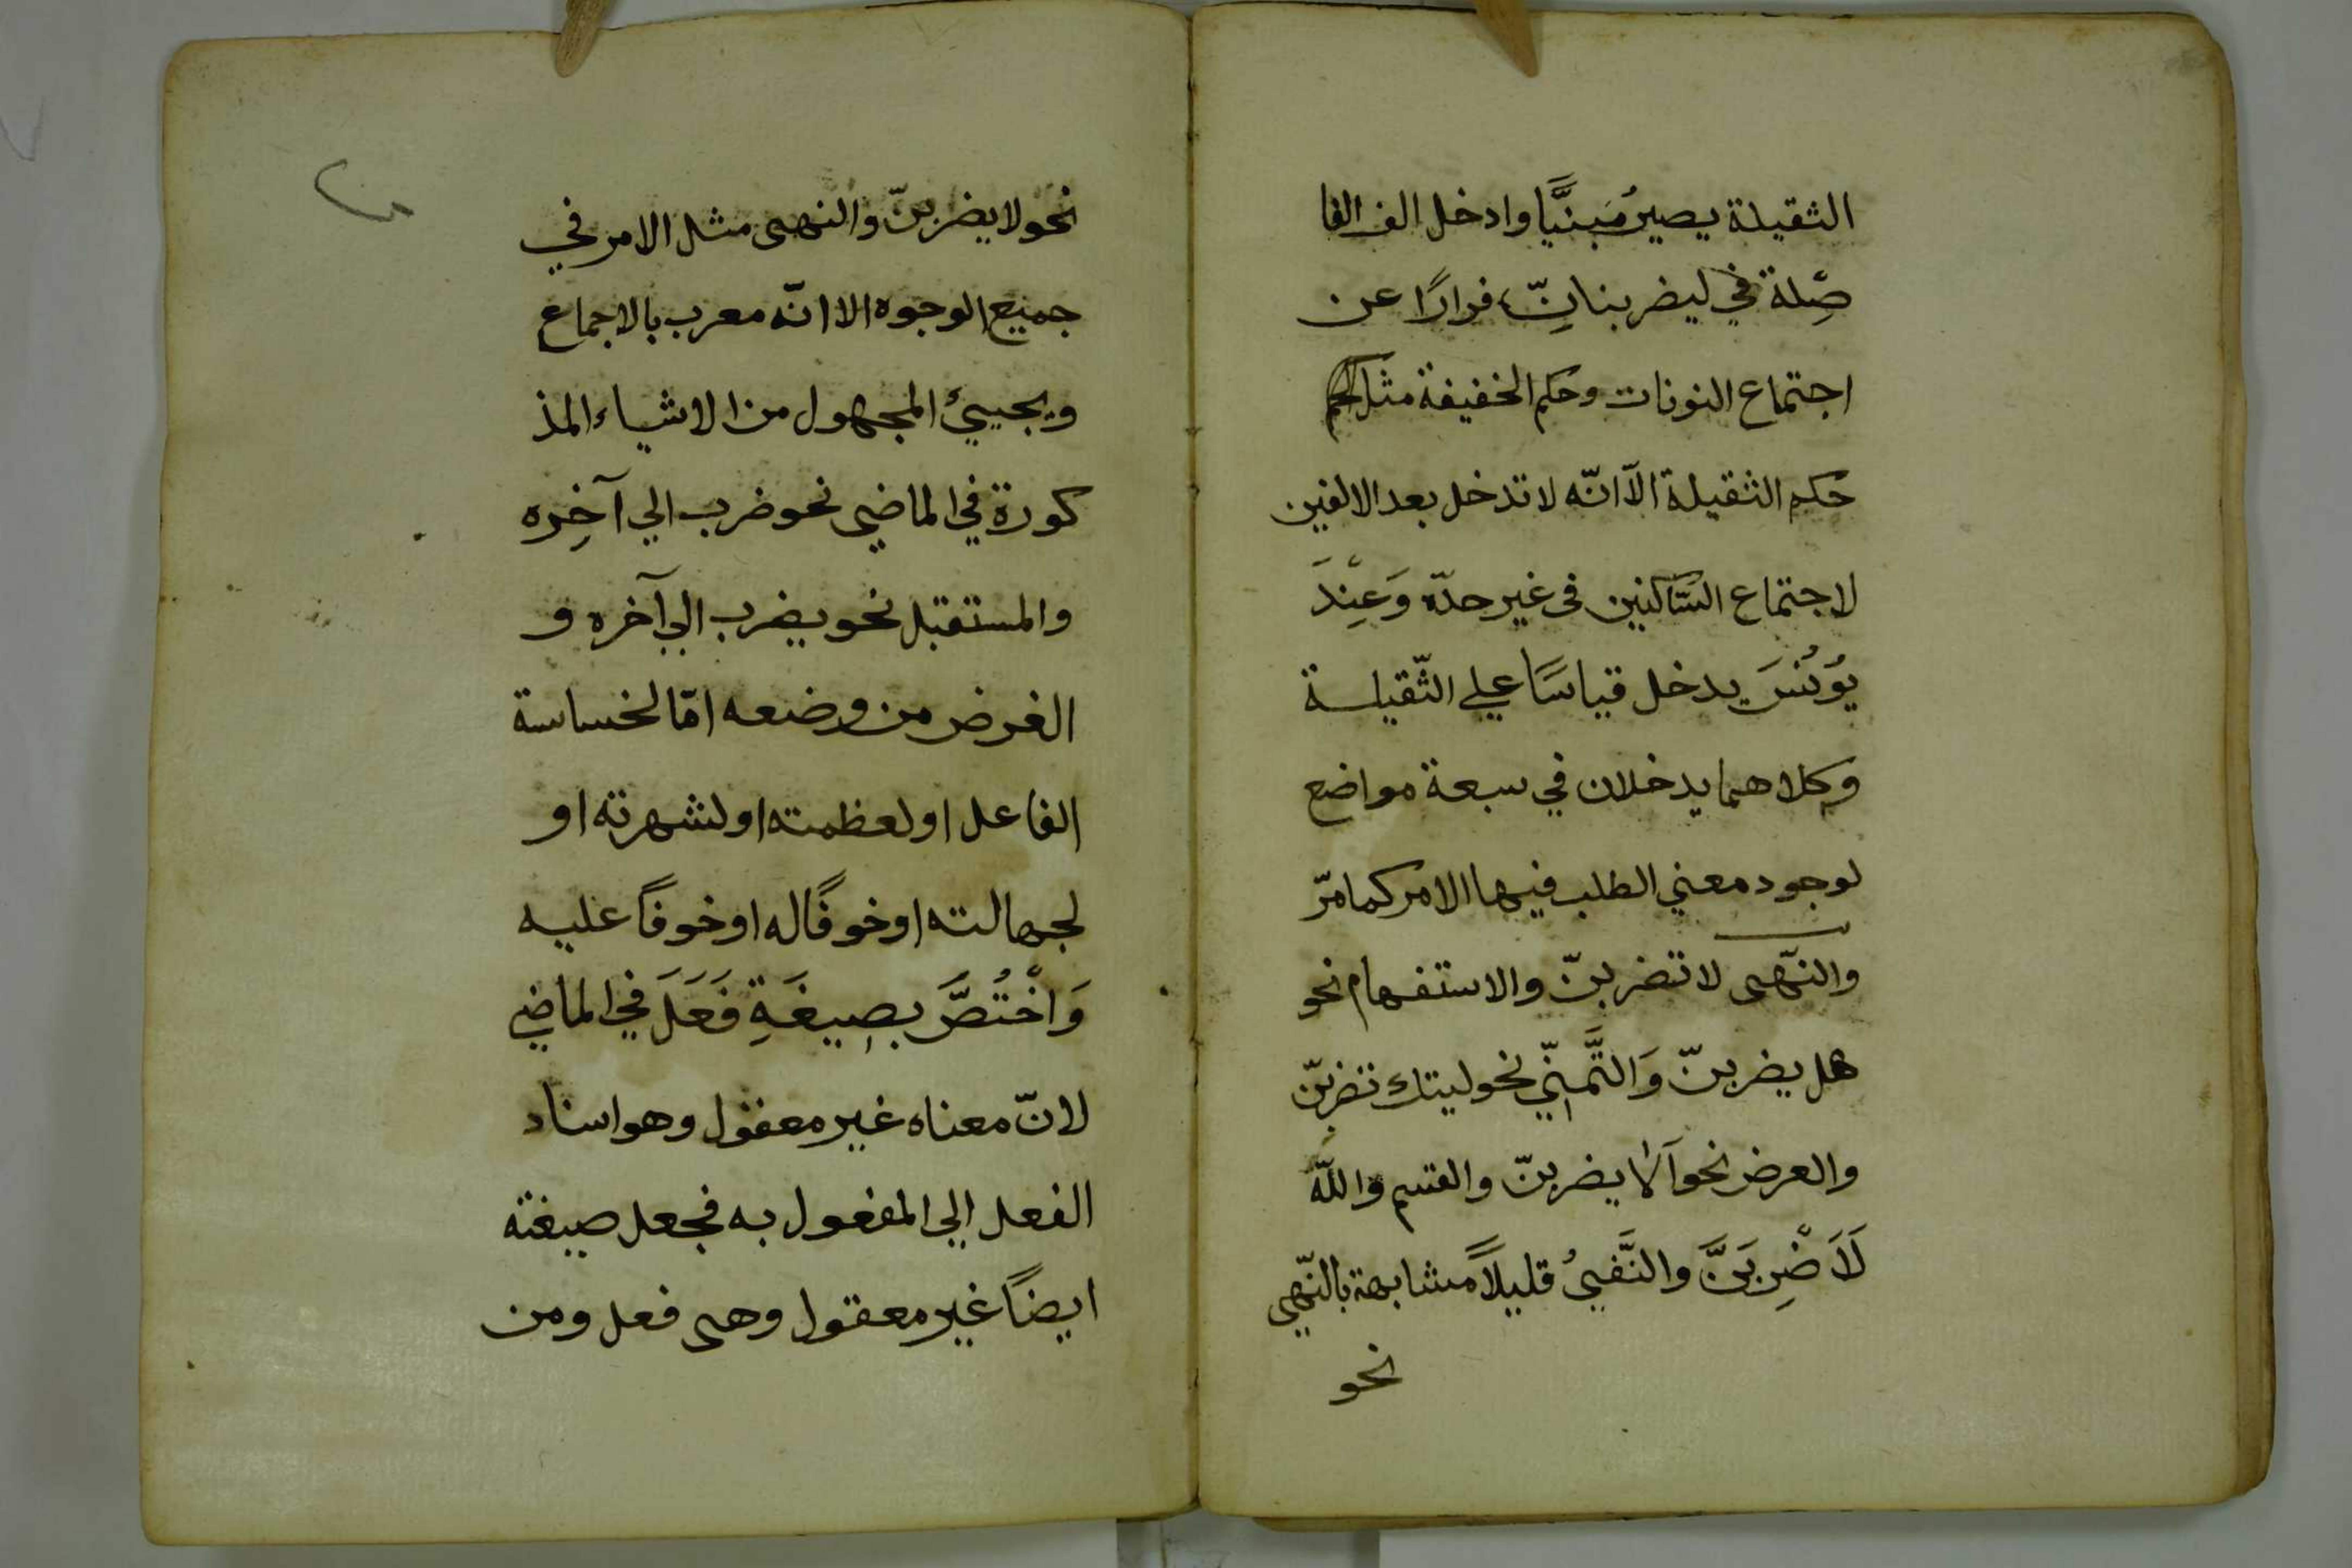 الثقيلة يصيرُ مَبنيًّا وادخل الف الفا
صِلة في ليضربنانِّ فرارًا عن
اجتماع النونات وحكم الخفيفة مثل
حكم الثقيلة الّا انّه لا تدخل بعد الالفين
لاجتماع السّاكنين فى غير حدّه وَعِنْدَ
يُونُسَ يدخل قياسًا علي الثّقيلة
وكلاهما يدخلان في سبعة مواضع
لوجود معني الطلب فيها الامر كما مرّ
والنّهى لا تضربنّ والاستفهام نحو
هل يضربنّ وَالتَّمنّي نحو ليتك تضربنّ
والعرض نحو اَلا يضربنّ والقسم واللّه
لَاَضْرِبَنَّ والنَّفيُ قليلًا مشابهة بالنّهي
نحو
نحو لا يضربنّ والنهى مثل الامر في
جميع الوجوه الا انّه معرب بالاجماع
ويجييئ المجهول من الاشياء المذ
كورة في الماضي نحو ضرب الي آخِره
والمستقبل نحو يضرب الي آخره و
الغرض من وضعه امّا لخساسة
الفاعل او لعظمته او لشهرته او
لجهالته او خوفًا له او خوفًا عليه
وَاخْتُصَّ بِصِيغَةِ فَعَلَ في الماضي
لانّ معناه غير معقول وهو اسناد
الفعل الي المفعول به فجعل صيغته
ايضًا غير معقول وهى فعل ومن